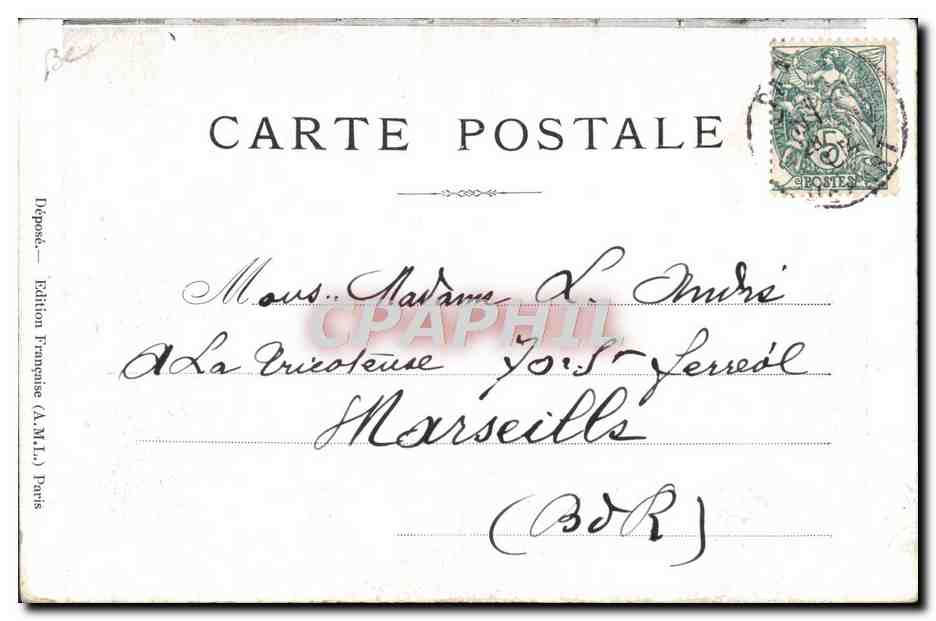 Be
CARTE POSTALE
5
POSTES
Déposé.— Edition Française (A.M.L.) Paris
Mous.. Madame L. André
A La Tricoteuse 70 r. St Ferréol
Marseille
(BdR)
CPAPHIL